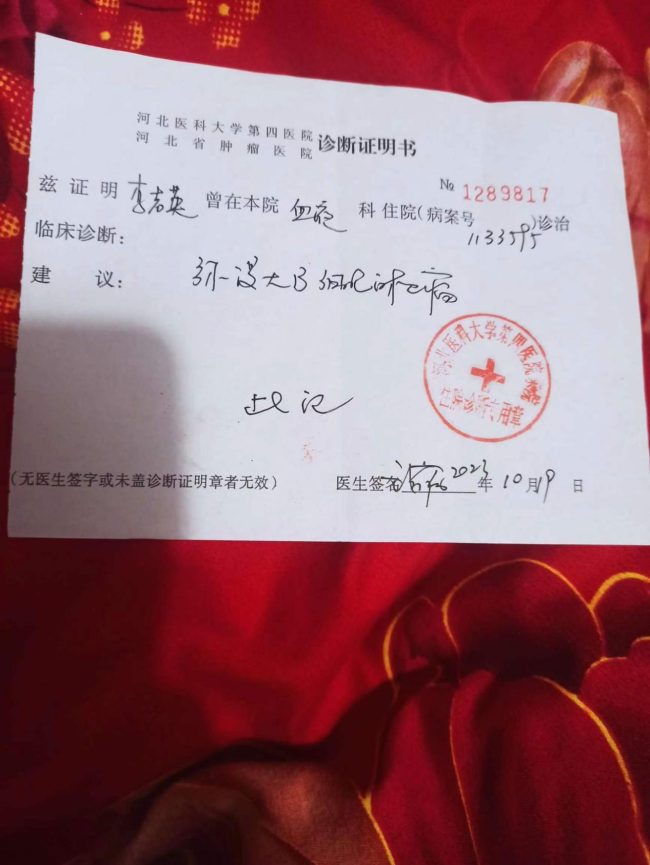 河北医科大学第四医院
河北省肿瘤医院 诊断证明书
№ 1289817
兹证明 李君英 曾在本院 血液 科住院(病案号 1133595 )诊治
临床诊断:
建 议: 弥漫大B细胞淋巴瘤
此记
河北医科大学第四医院
住院诊断专用章
(无医生签字或未盖诊断证明章者无效) 医生签名 2023 年 10 月 19 日